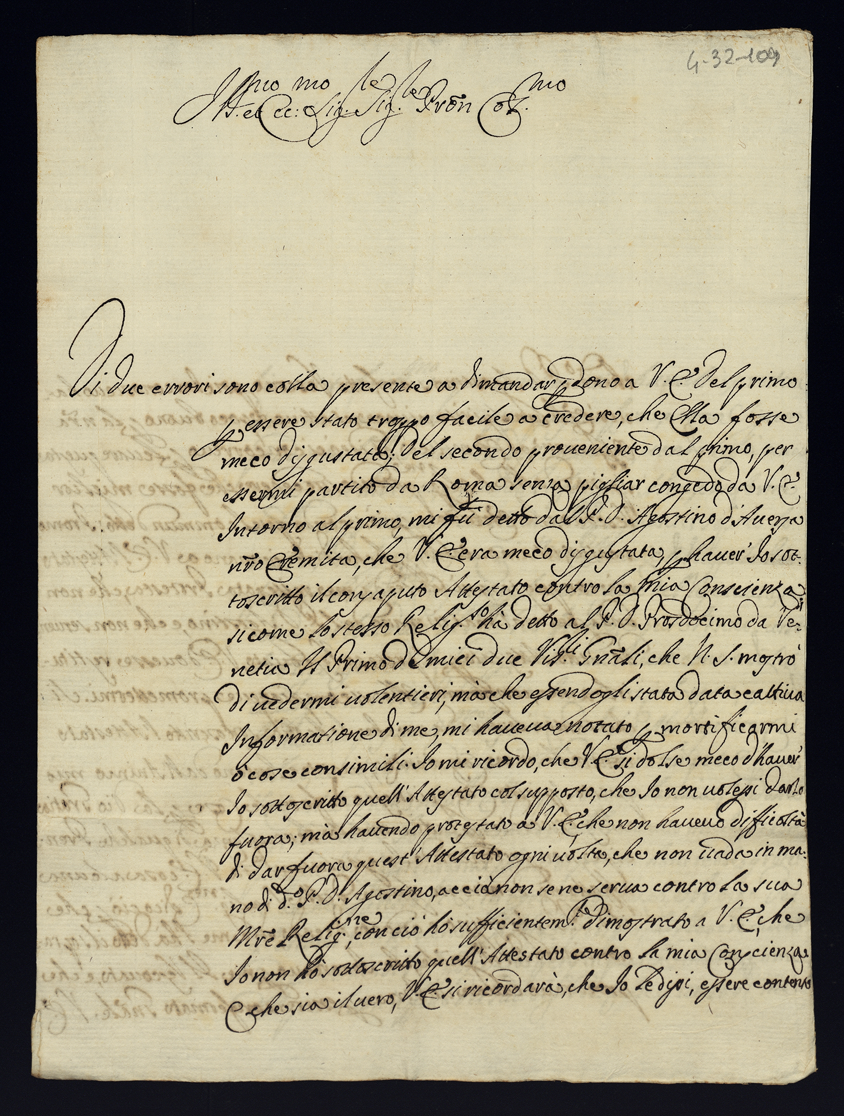 4-32-109
Ill.mo et Ecc.mo Sig.re Sig.re Pron Col.mo
Di due errori sono colla presente a dimandar pdono a V. E. Del primo
p essere stato troppo facile a credere, che Ella fosse
meco disgustata; Del secondo proveniente dal primo, per
essermi partito da Roma senza pigliar congedo da V. E.
Intorno al primo, mi fù detto dal P. D. Agostino d'Aversa
nro Eremita, che V. E. era meco disgustata, p haver' Io sot-
toscritto il consaputo Attestato contro la mia Conscienza,
sicome lo stesso Relig.so hà detto al P. D. Prosdocimo da Ve-
netia Il Primo de miei due Vis.li Gnali, che N. S. mostrò
di vedermi volentieri, mà che essendogli stata data cattiva
Informatione di me, mi haveva notato p mortificarmi
ò cose consimili. Io mi ricordo, che V. E. si dolse meco d'haver'
Io sottoscritto quell'Attestato col supposto, che Io non volessi darlo
fuora; mà havendo protestato a V. E. che non havevo difficoltà
di dar fuora quest'Attestato ogni volta, che non vada in ma-
no di d.o P. D. Agostino, acciò non se ne serva contro la sua
Mre Relig.ne, con ciò hò sufficientem.te dimostrato a V. E. che
Io non hò sottoscritto quell'Attestato contro la mia Conscienza
E che sia il vero, V. E. si ricordarà, che Io Le dissi, essere contento